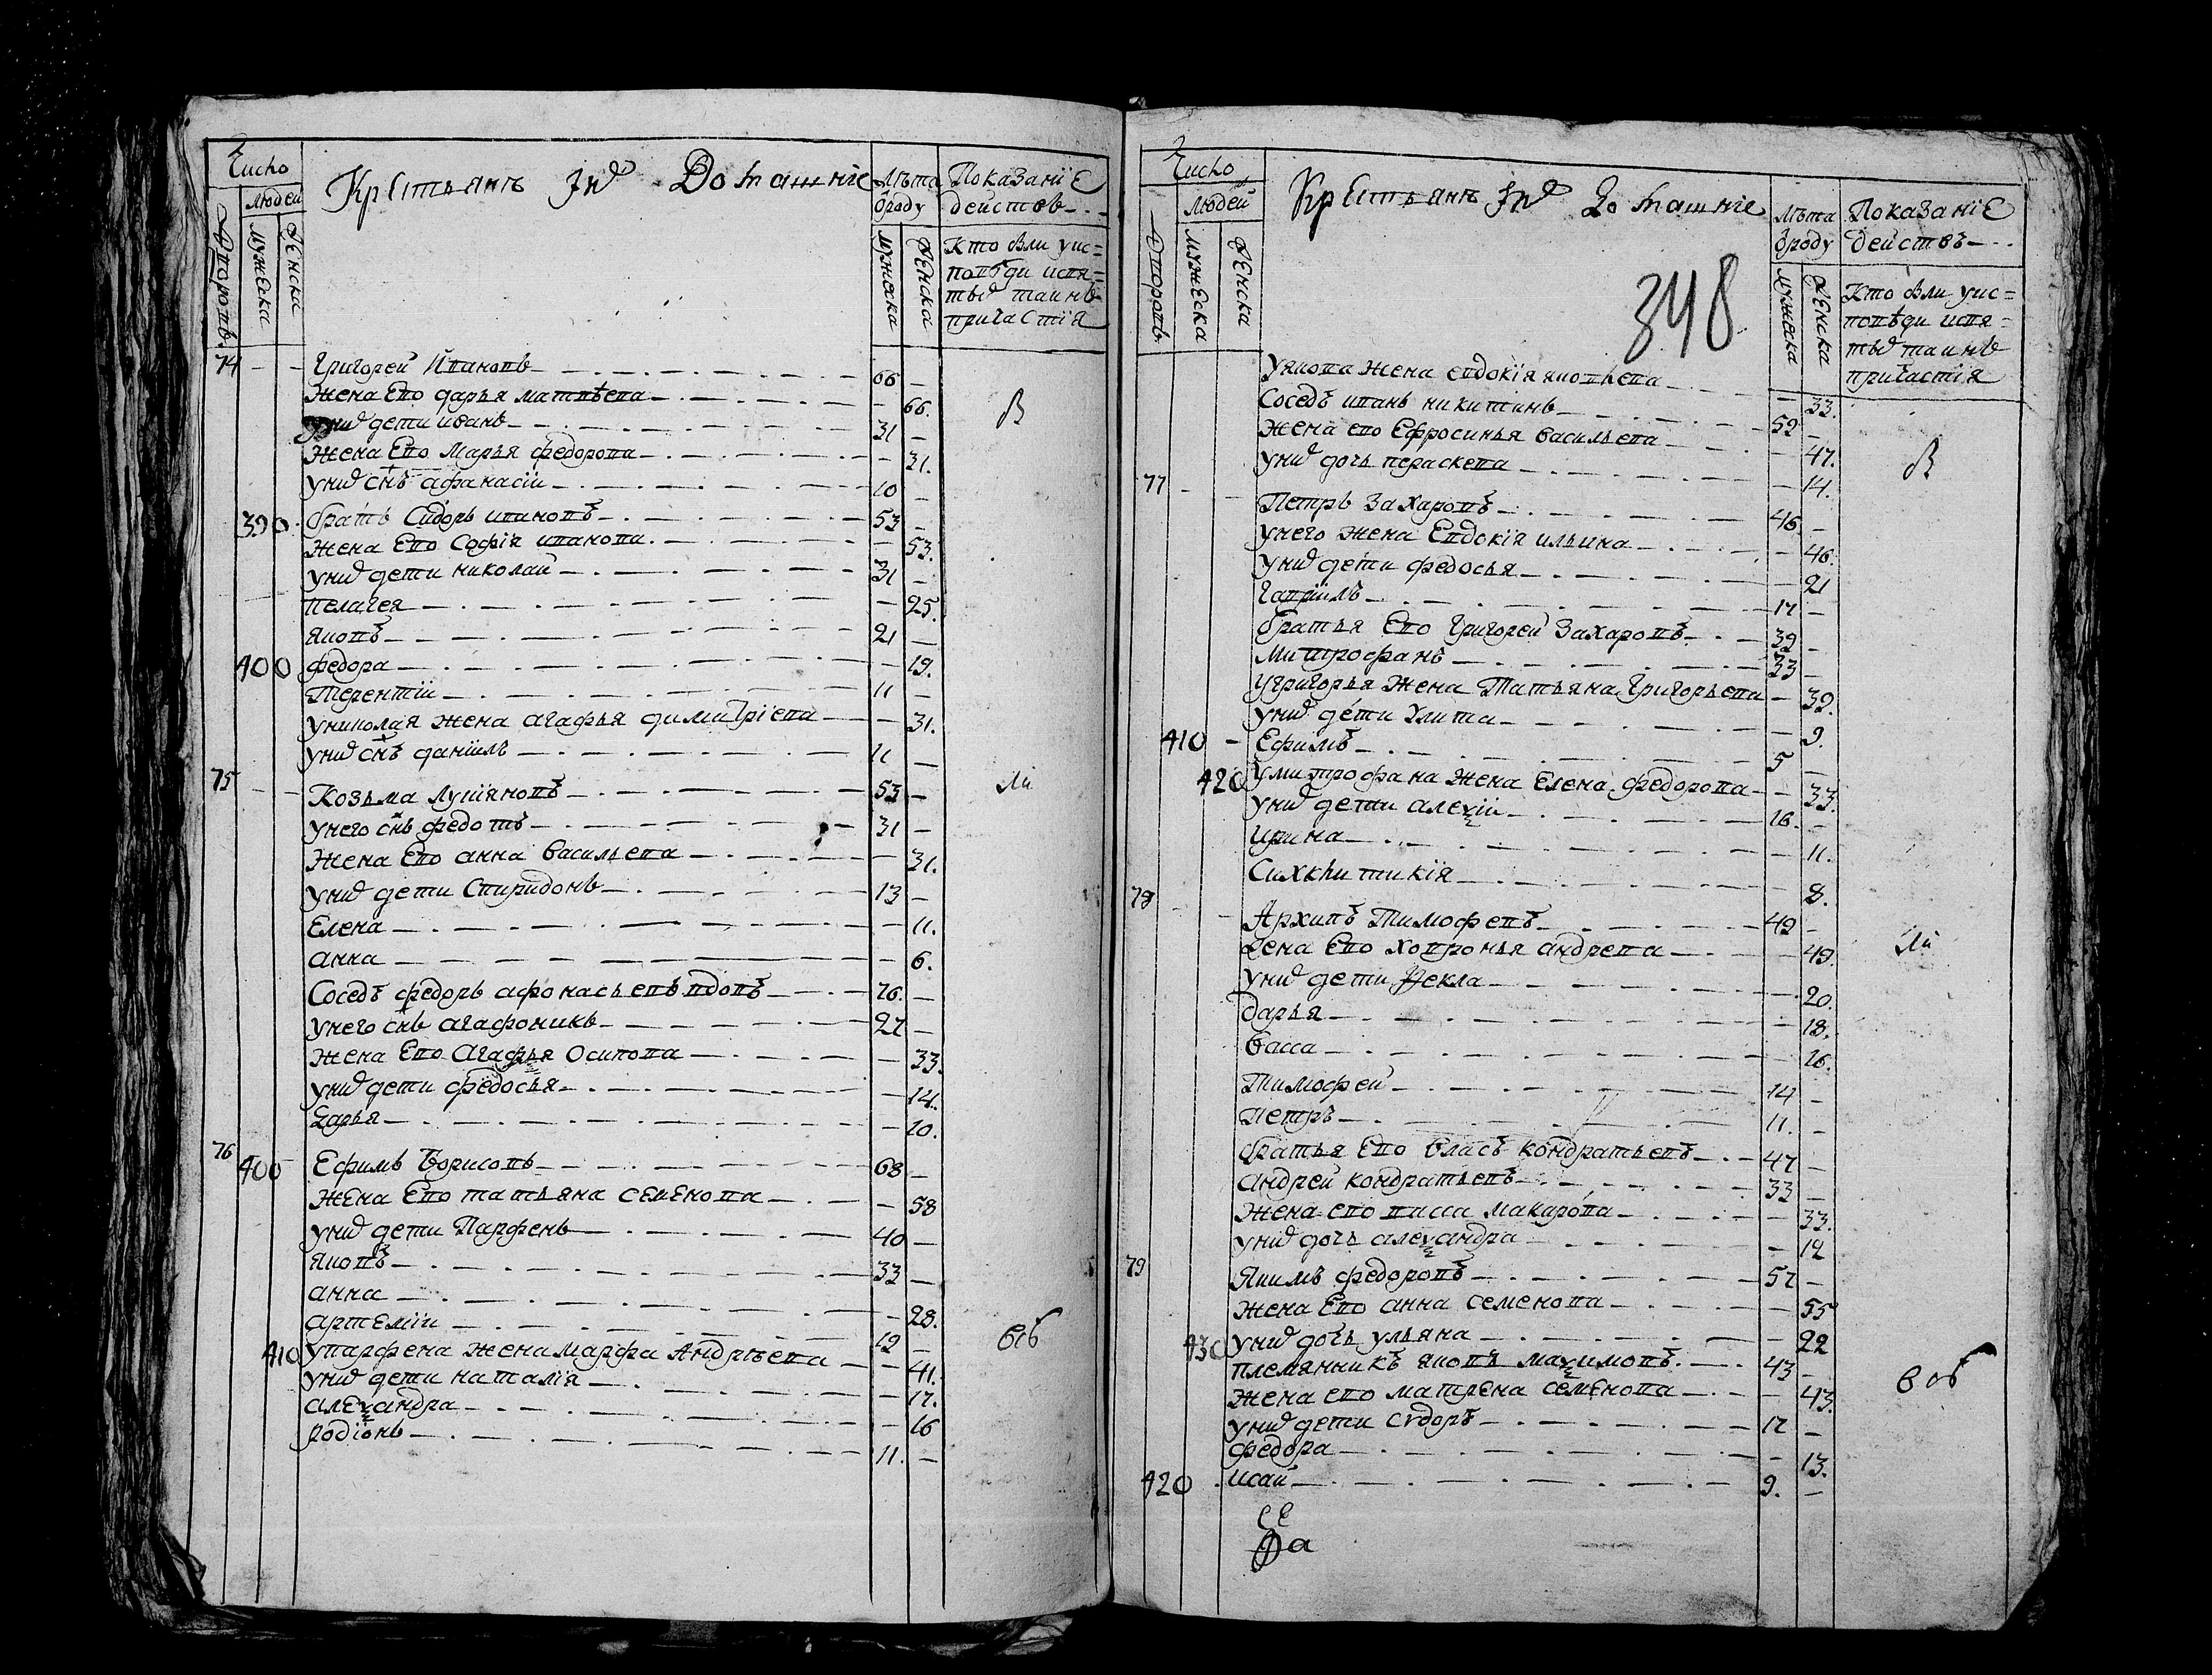 Число
людей
Дворовъ
мужеска
женска
Крестьянъ ихъ Домашние
Лѣта
ѿроду
мужеска
женска
Показаніе
действъ
Кто былъ уис=
повѣди исвя=
тыхъ таинъ
причастія
74 Григорей Ивановъ 66
Жена Его дарья матвѣева 66.
унихъ дети иванъ 31
Жена Его Марья федорова 31.
унихъ сн҃ъ афанасіи 10
390 братъ Сидоръ ивановъ 53
Жена Его Софія иванова 53.
унихъ дети николаи 31
пелагея 25.
яковъ 21
400 федора 19.
Терентіи 11
униколая жена агафья димитріева 31.
унихъ сн҃ъ даніилъ 11
75 Козьма Лукіяновъ 53
унего сн҃ъ федотъ 31
Жена Его анна васильева 31.
унихъ дети Спиридонъ 13
Елена 11.
анна 6.
Соседъ федоръ афонасьевъ вдовъ 76.
унего сн҃ъ агафоникъ 27
жена Его Агафья Осипова 33.
унихъ дети федосья 14.
Дарья 10.
76 400 Ефимъ Борисовъ 68
Жена Его татьяна семенова 58
унихъ дети Парфенъ 40
яковъ 33
анна 28.
артеміи 19
410 упарфена жена марфа Андрѣева 41.
унихъ дети наталія 17.
алеѯандра 16
родіонъ 11.
Число
людей
Дворовъ
мужеска
женска
Крестьянъ ихъ Домашние
348
Лѣта
ѿроду
мужеска
женска
Показаніе
действъ
Кто былъ уис=
повѣди исвя=
тыхъ таинъ
причастія
Уякова жена евдокія яковлева 33.
Соседъ иванъ никитинъ 52
жена его Ефросинья васильева 47.
унихъ дочь параскева 14.
77 Петръ Захаровъ 46.
унего жена Евдокія ильина 46.
унихъ дети федосья 21
Гавріилъ 17
братья Его Григорей Захаровъ 39
Митрофанъ 33
Угригорья Жена Татьяна Григорьева 39.
унихъ дети Улита 9.
410 Ефимъ 5
420 Умитрофана Жена Елена федорова 33.
унихъ дети алеѯіи 16.
ирина 11.
Синклитикія 8.
78 Архипъ Тимофевъ 49
Жена Его ховронья андрева 49.
унихъ дети Фекла 20.
дарья 18.
васса 16.
Тимофей 14
петръ 11.
братья Его власъ кондратьевъ 47
андрей кондратьевъ 33
Жена его васса макарова 33.
унихъ дочь алеѯандра 12
79 Якимъ федоровъ 57
жена Его анна семенова 55
430 унихъ дочь ульяна 22
племянникъ яковъ маѯимовъ 43
жена его матрена семенова 43.
унихъ дети сѵдоръ 17
федора 13.
420 исаи 9.